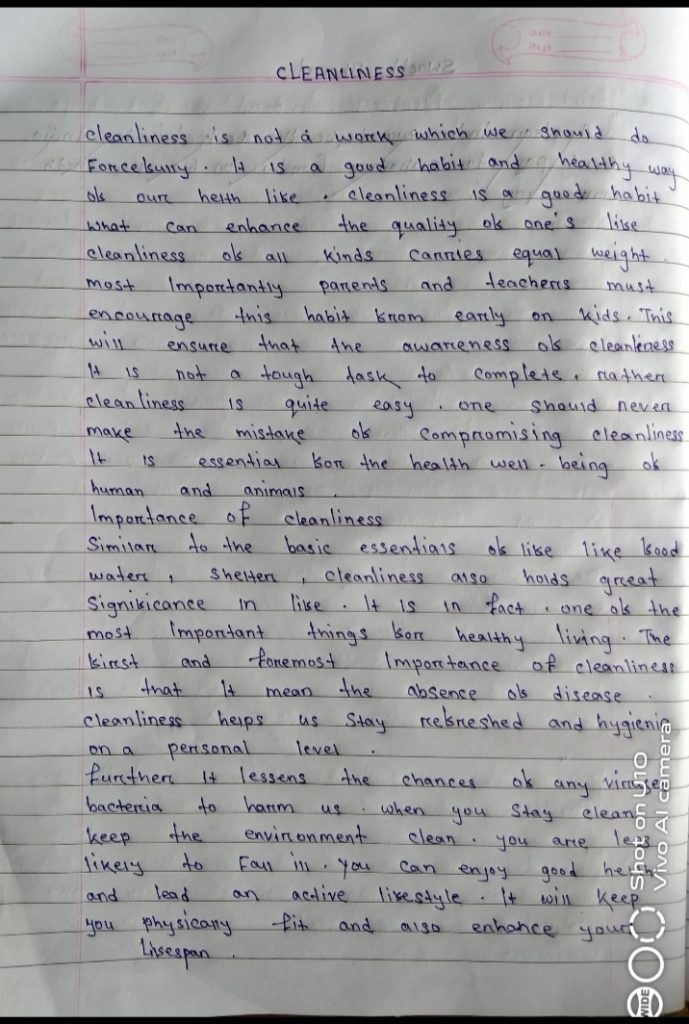 CLEANLINESS
cleanliness is not a work which we should do
Forcefully. It is a good habit and healthy way
of our helth life. cleanliness is a good habit
what can enhance the quality of one's life
cleanliness of all kinds carries equal weight.
most Importantly parents and teachers must
encourage this habit from early on kids. This
will ensure that the awareness of cleanliness
It is not a tough task to complete. rather
cleanliness is quite easy. one should never
make the mistake of compromising cleanliness
It is essential for the health well-being of
human and animals.
Importance of cleanliness
Similar to the basic essentials of life like food
water, shelter, cleanliness also holds great
Significance in life. It is in fact. one of the
most Important things for healthy living. The
first and foremost Importance of cleanliness
is that It mean the absence of disease.
cleanliness helps us stay refreshed and hygienic
on a personal level.
further It lessens the chances of any viruses
bacteria to harm us. when you stay clean
keep the environment clean. you are less
likely to Fall ill. You can enjoy good helth
and lead an active lifestyle. It will keep
you physically fit and also enhance your
lifespan.
Shot on U10
Vivo AI camera
WIDE